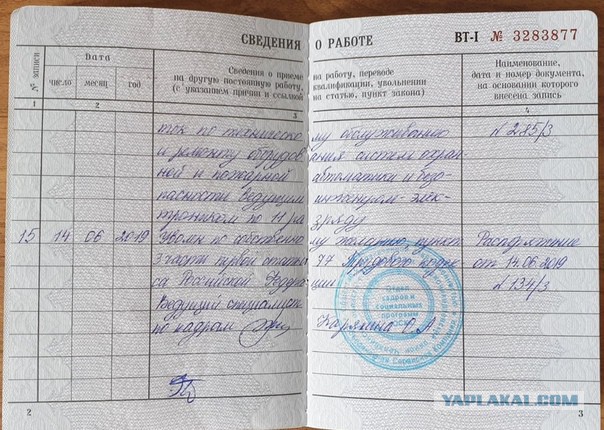 СВЕДЕНИЯ О РАБОТЕ
ВТ-I № 3283877
№ записи
Дата
число месяц год
Сведения о приеме на работу, переводе
на другую постоянную работу, квалификации, увольнении
(с указанием причин и ссылкой на статью, пункт закона)
Наименование,
дата и номер документа,
на основании которого
внесена запись
1 2 3 4
ток по техническому обслуживанию № 285/3
и ремонту оборудования систем охран-
ной и пожарной автоматики и безо-
пасности ведущим инженером-элек-
троником по 11 разряду
15 14 06 2019 Уволен по собственному желанию, пункт Распоряжение
3 части первой статьи 77 Трудового кодек- от 14.06.2019
са Российской Федерации № 134/3
Ведущий специалист
по кадрам О.А.
Отдел
кадров и
социальных
программ
2
3
YAPLAKAL.COM